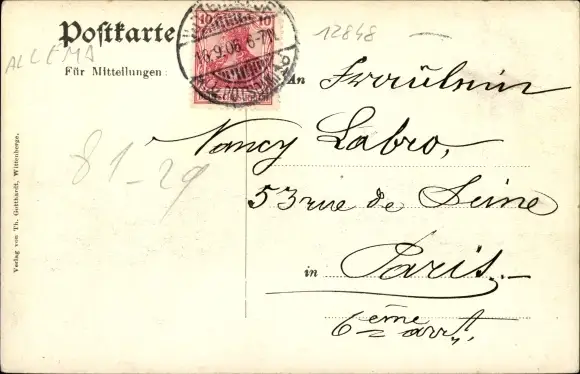 Postkarte
12848
ALLEMA
Für Mitteilungen:
An Fräulein
Nancy Labro,
53 rue de Seine
in Paris.–
6ème arrt.
81–29
10 10
Verlag von Th. Gotthardt, Wittenberge.